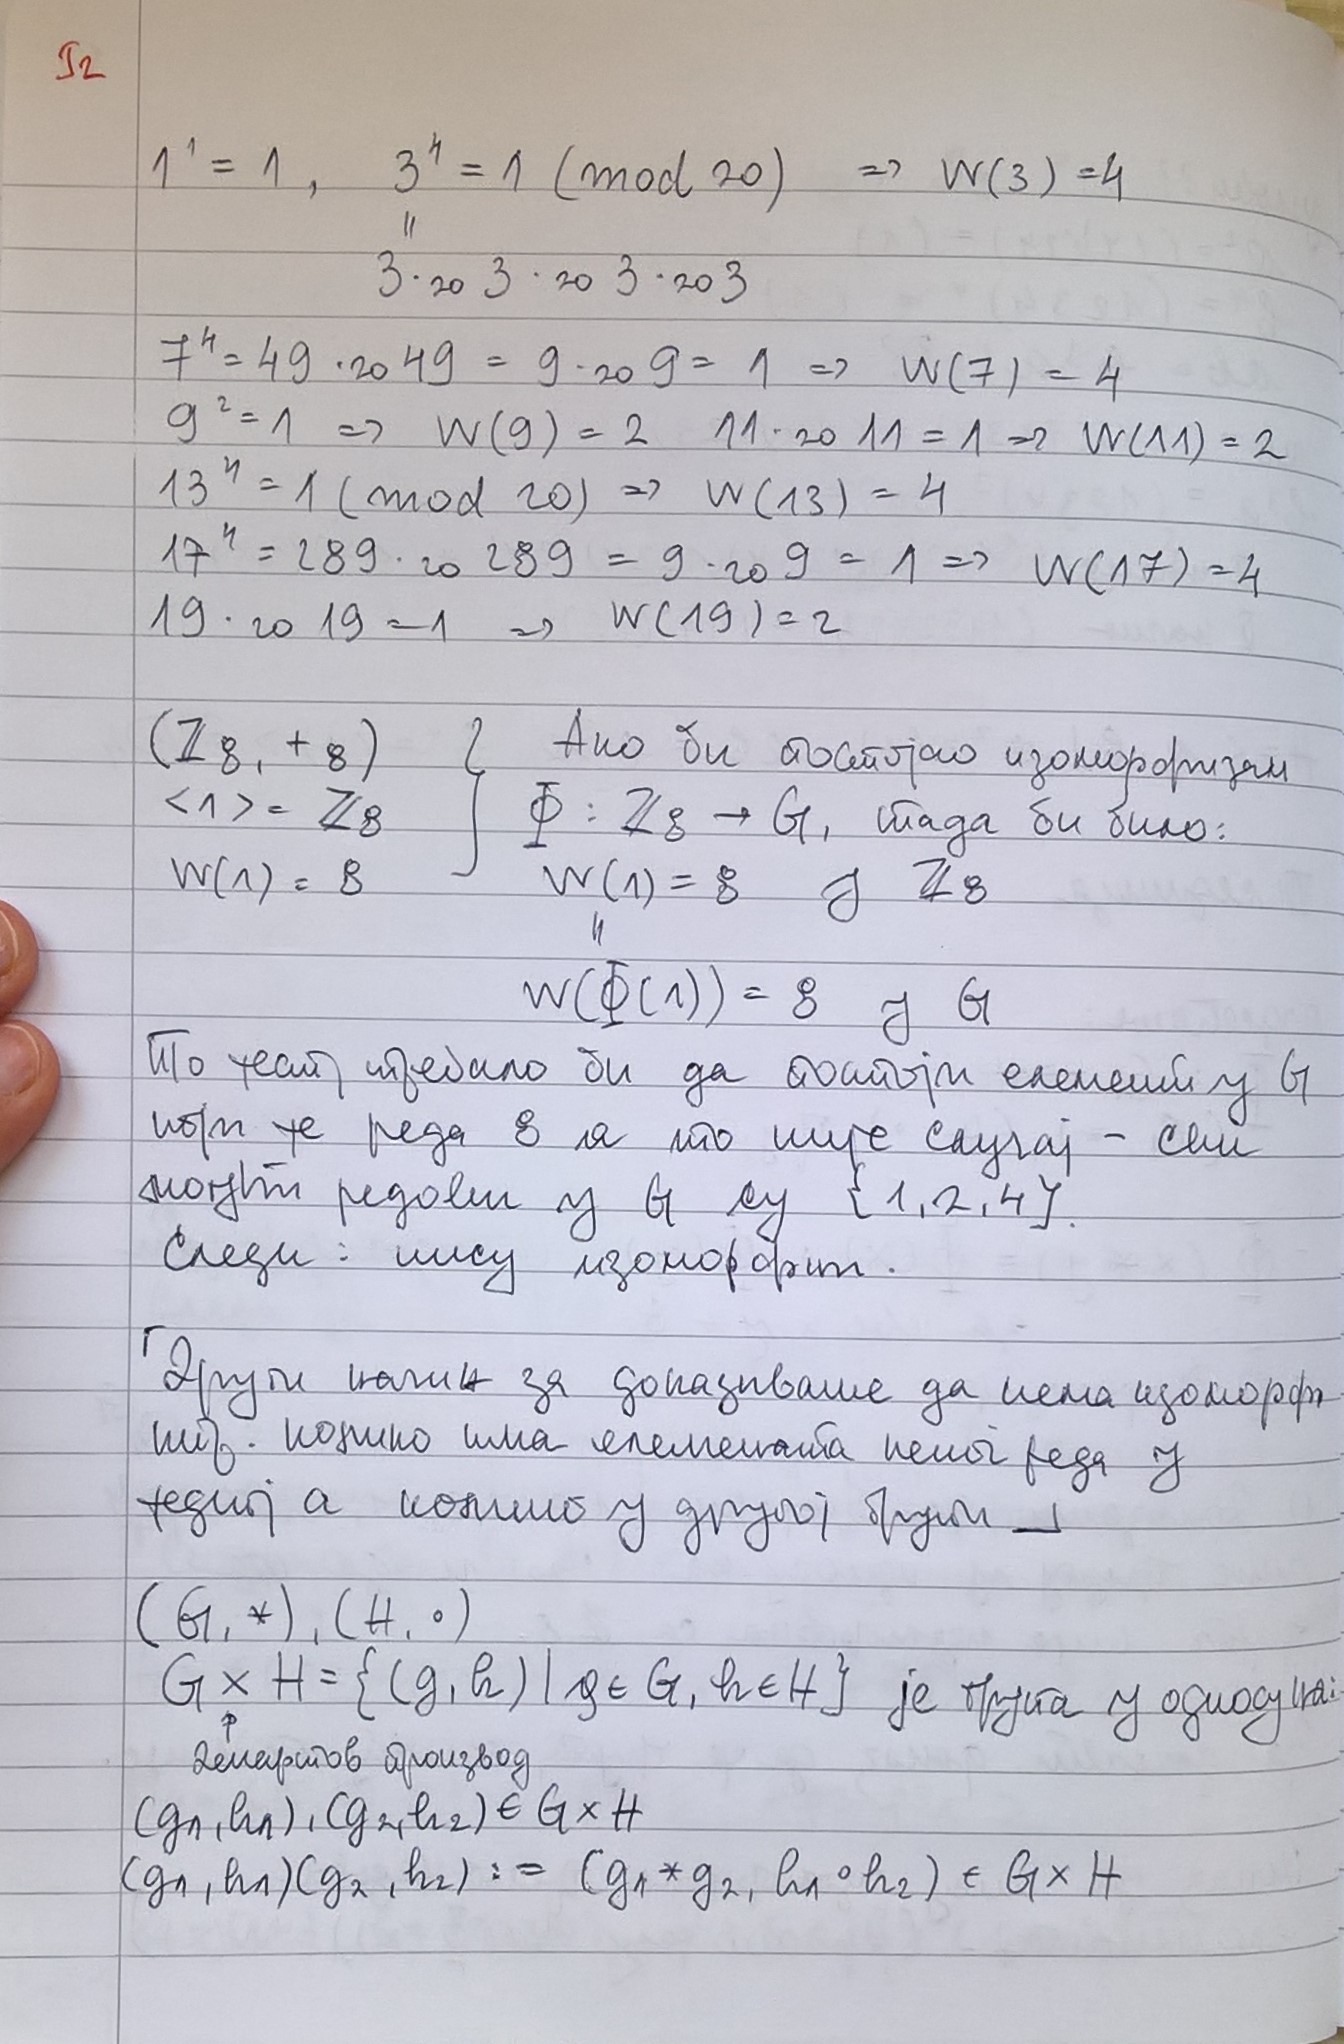 52
1¹ = 1, 3⁴ = 1 (mod 20) => w(3) = 4
"
3 ·₂₀ 3 ·₂₀ 3 ·₂₀ 3
7⁴ = 49 ·₂₀ 49 = 9 ·₂₀ 9 = 1 => w(7) = 4
9² = 1 => w(9) = 2 11 ·₂₀ 11 = 1 => w(11) = 2
13⁴ = 1 (mod 20) => w(13) = 4
17⁴ = 289 ·₂₀ 289 = 9 ·₂₀ 9 = 1 => w(17) = 4
19 ·₂₀ 19 = 1 => w(19) = 2
(ℤ₈, +₈) } Ако би постојао изоморфизам
<1> = ℤ₈ Φ : ℤ₈ → G, тада би било:
w(1) = 8 w(1) = 8 у ℤ₈
"
w(Φ(1)) = 8 у G
То јест, требало би да постоји елемент у G
који је реда 8 а то није случај - сви
могући редови у G су {1, 2, 4}.
Следи: нису изоморфни.
⌈Други начин за доказивање да нема изоморф
низ. колико има елемената неког реда у
једној а колико у другој групи ⌋
(G, *), (H, ∘)
G × H = {(g, h) | g ∈ G, h ∈ H} је група у односу на:
↑
Декартов производ
(g₁, h₁), (g₂, h₂) ∈ G × H
(g₁, h₁)(g₂, h₂) := (g₁ * g₂, h₁ ∘ h₂) ∈ G × H